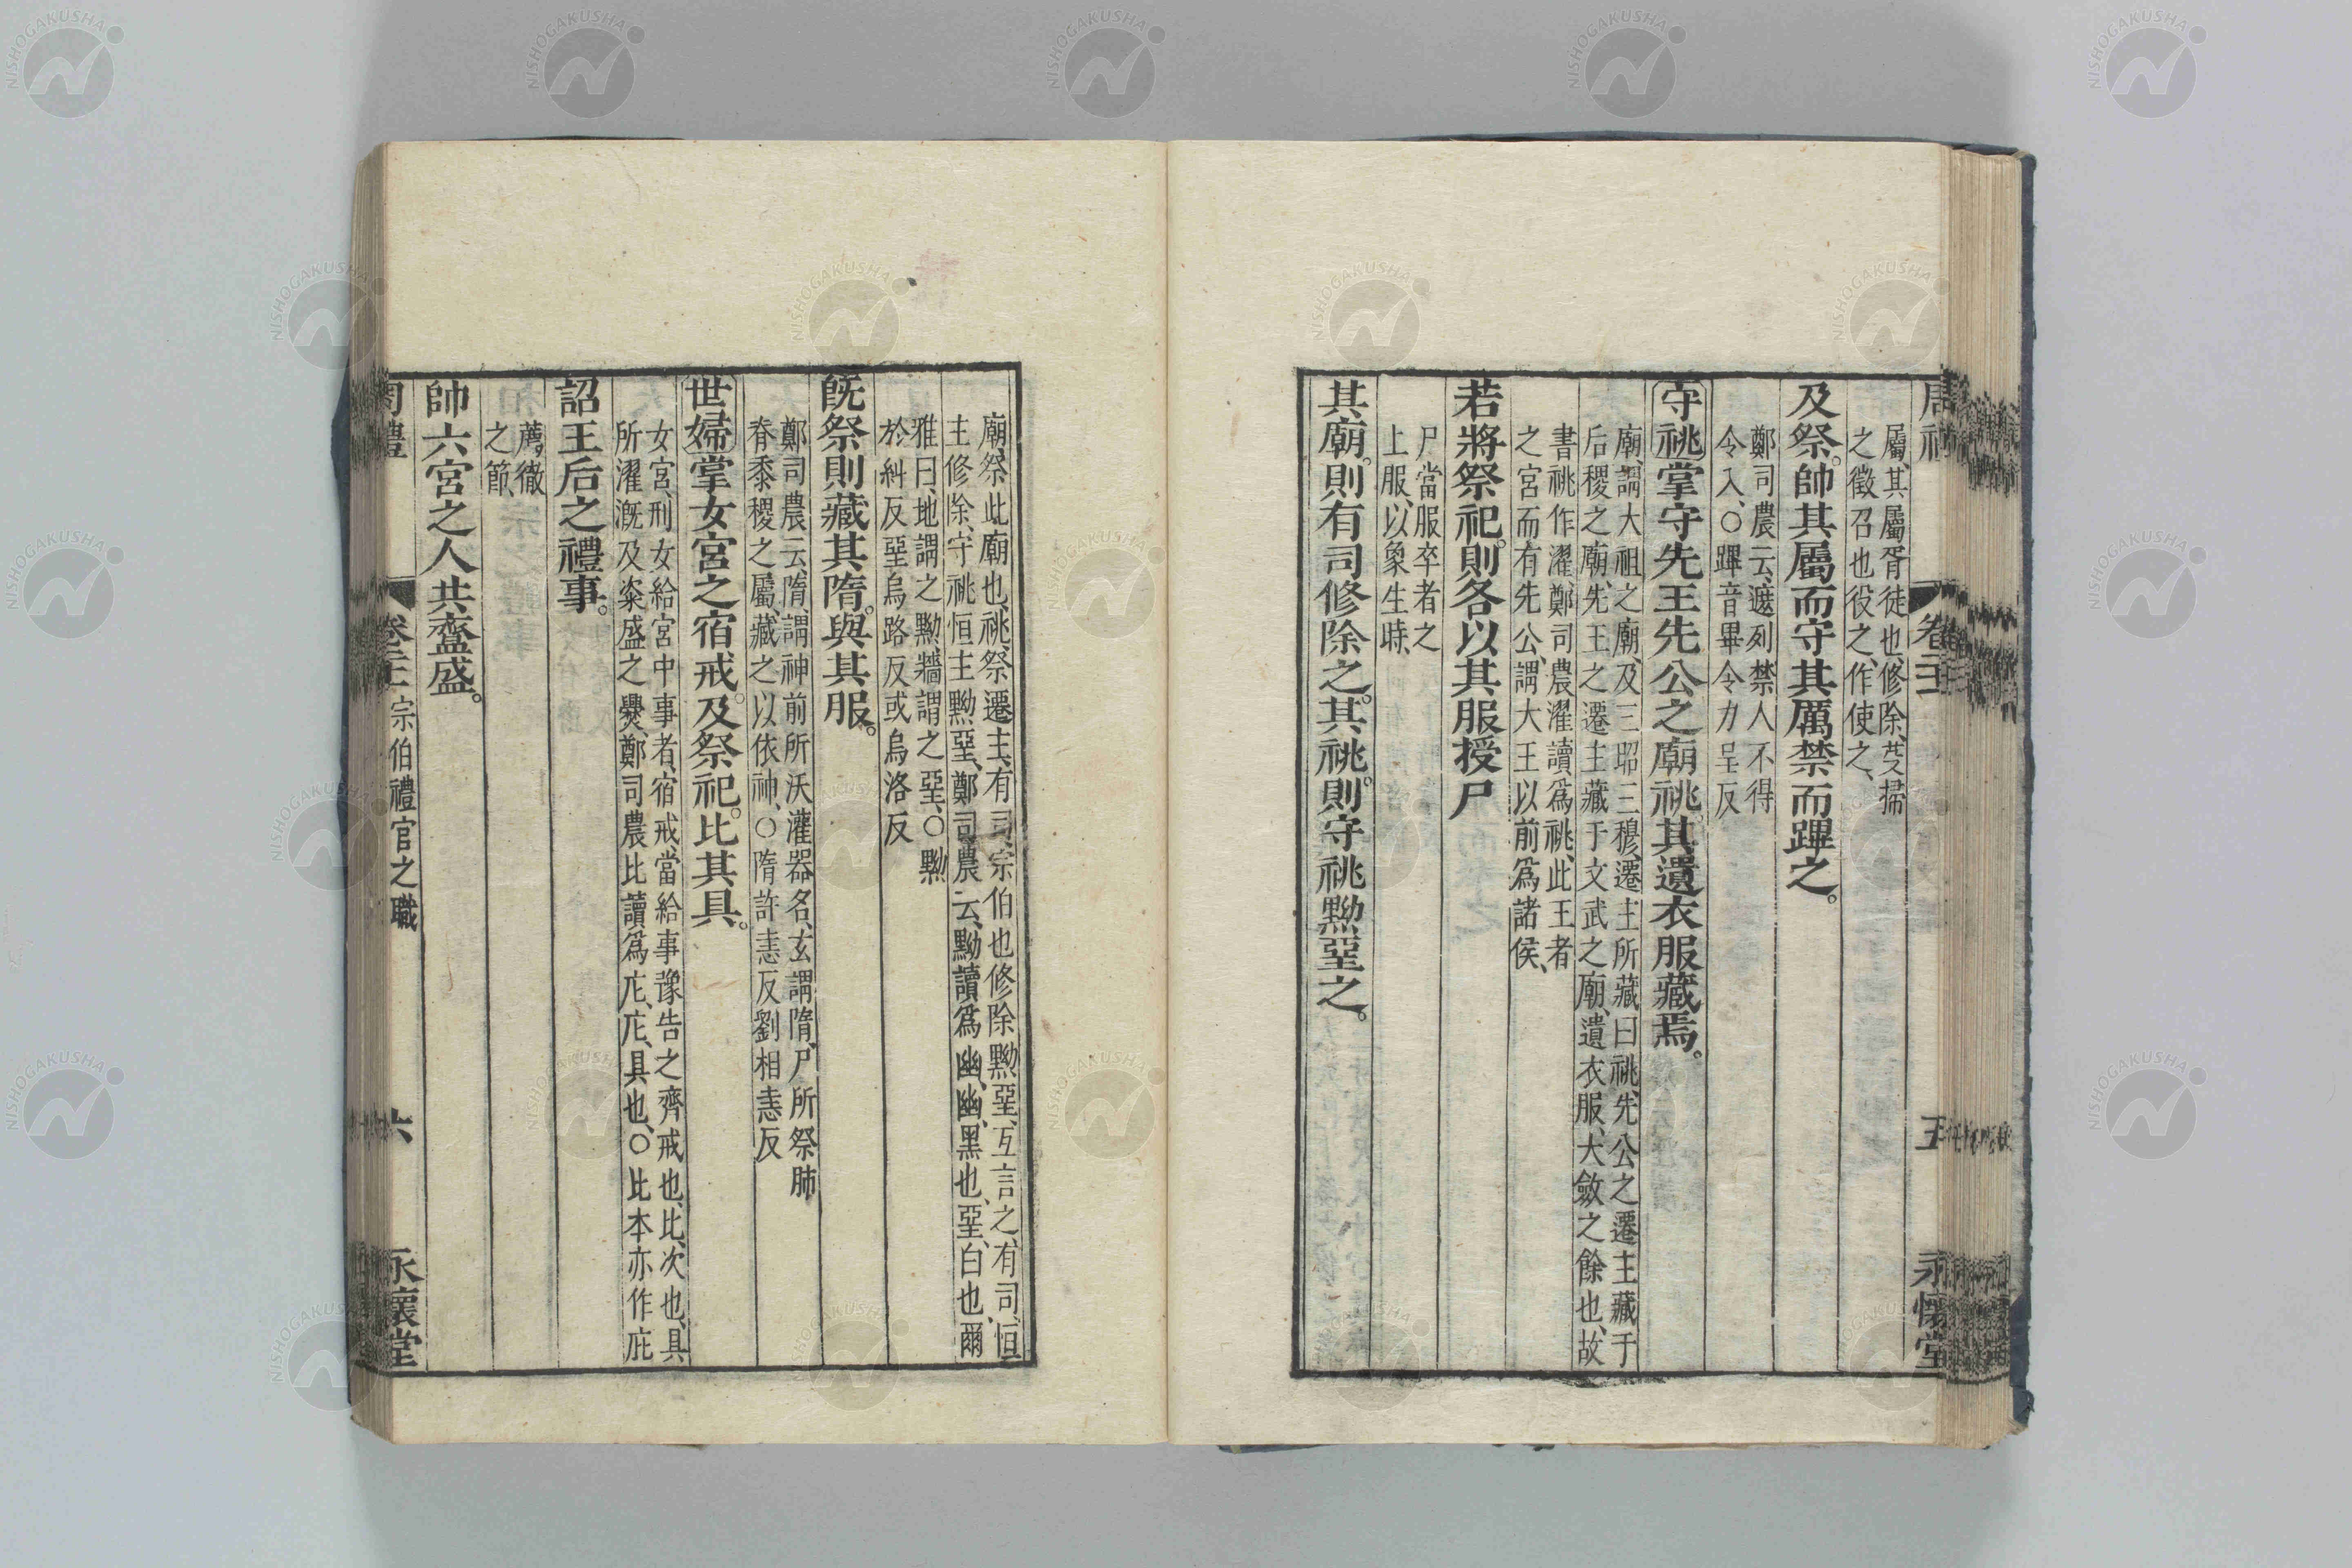 屬、其屬胥徒也、修除、芟掃
之、徵召也、役之、作使之、
及祭。帥其屬而守其厲禁而蹕之。
鄭司農云、遮列禁人不得
令入、○蹕音畢令力呈反
守祧掌守先王先公之廟祧。其遺衣服藏焉。
廟、謂大祖之廟、及三昭三穆、遷主所藏曰祧、先公之遷主藏于
后稷之廟、先王之遷主藏于文武之廟、遺衣服、大斂之餘也、故
書祧作濯、鄭司農濯讀爲祧、此王者
之宮而有先公、謂大王以前爲諸侯、
若將祭祀。則各以其服授尸
尸當服卒者之
上服、以象生時、
其廟。則有司修除之。其祧。則守祧黝堊之。
五
永懷堂
廟、祭此廟也、祧、祭遷主、有司、宗伯也、修除黝堊、互言之、有司恒
主修除、守祧恒主黝堊、鄭司農云、黝讀爲幽、幽、黑也、堊、白也、爾
雅曰、地謂之黝、牆謂之堊、○黝
於糾反堊烏路反或烏洛反
旣祭則藏其隋。與其服。
鄭司農云、隋、謂神前所沃灌器名、玄謂隋、尸所祭肺
脊黍稷之屬、藏之以依神、○隋許恚反劉相恚反
世婦掌女宮之宿戒。及祭祀。比其具。
女宮、刑女給宮中事者、宿戒、當給事豫告之齊戒也、比、次也、具
所濯漑及粢盛之爨、鄭司農比讀爲庀、庀、具也、○比本亦作庇
詔王后之禮事。
薦徹
之節、
帥六宮之人共齍盛。
宗伯禮官之職
六
永懷堂